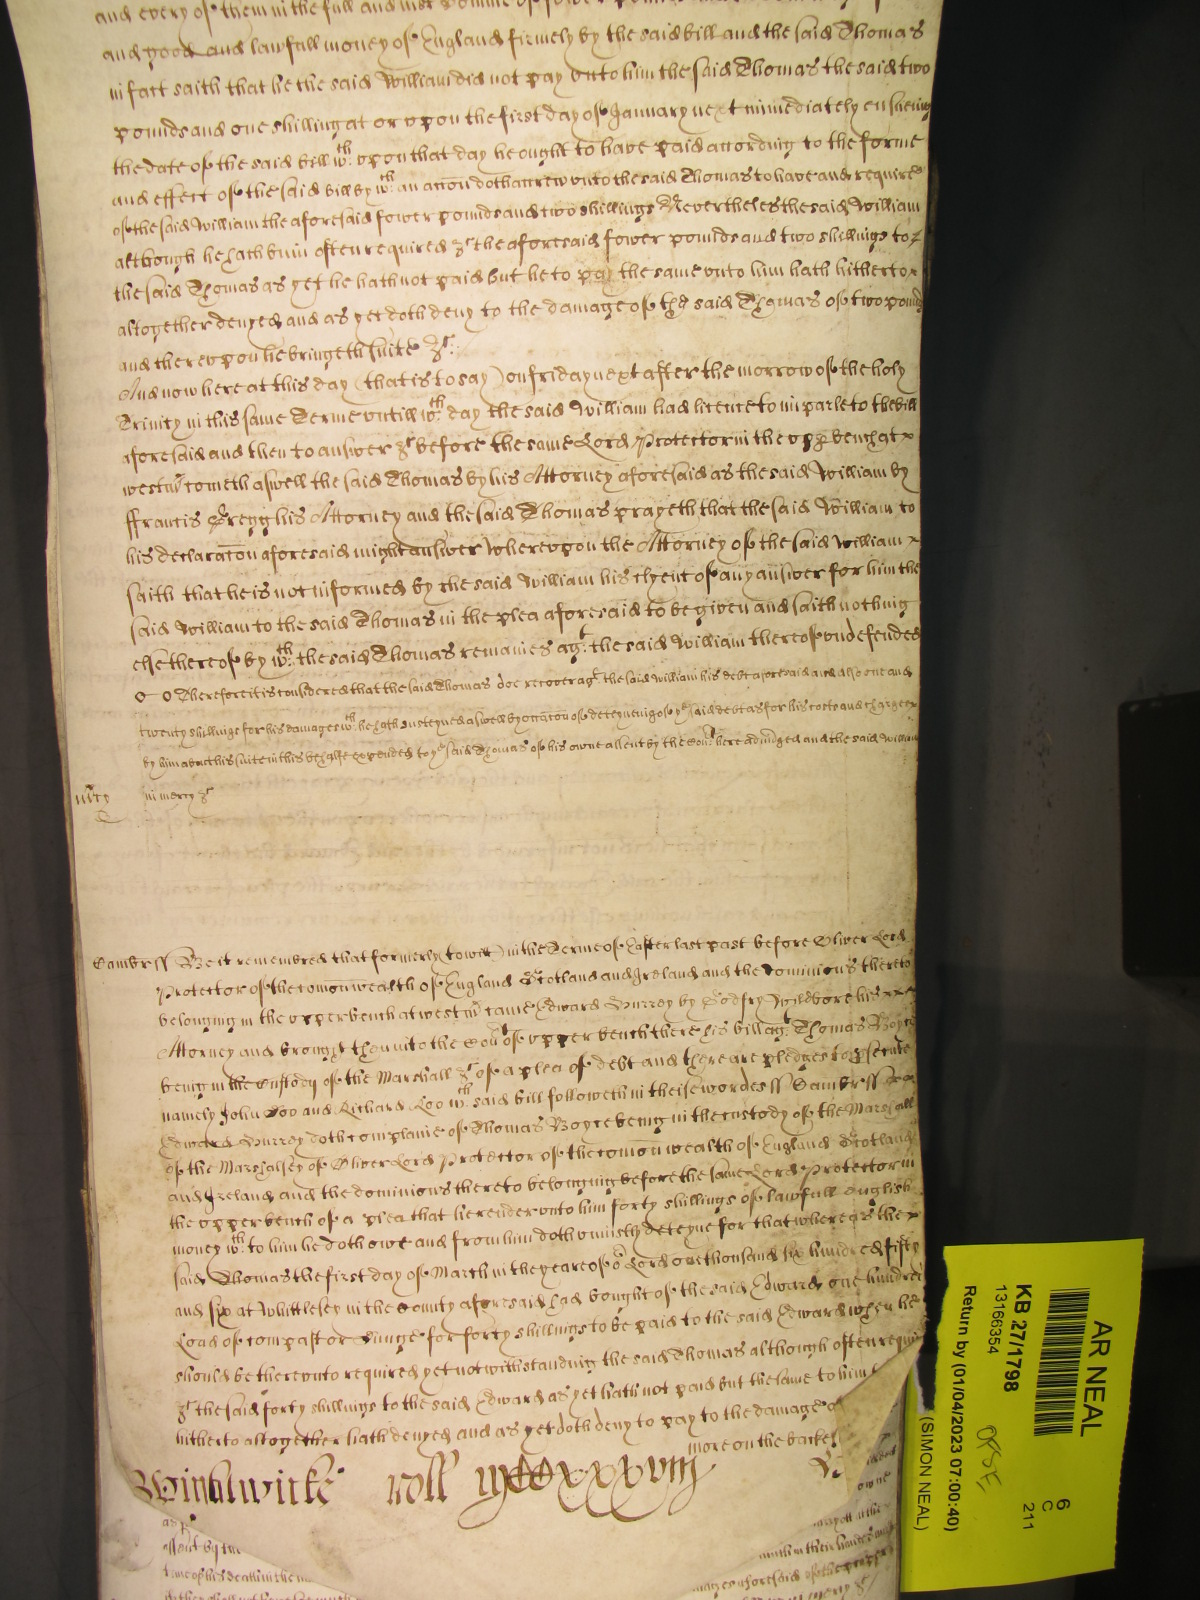 and every of them in the full and just Somme of fower
and good and lawfull money of England firmely by the said bill and the said Thomas
in fact saith that he the said William did not pay unto him the said Thomas the said two
pounds and one shilling at or vpon the first day of January next immediately ensueing
the date of the said bill wth. vpon that day he ought to have paid according to the forme
and effect of the said bill by wth. an accon doth accrew vnto the said Thomas to have and require
of the said William the aforesaid fower pounds and two shillings Neverthelesthesaid William
although he hath binn often required &c the aforesaid fower pounds and two shillings to
the said Thomas as yet he hath not paid but he to pay the same vnto him hath hitherto
altogether denyed and as yet doth deny to the damage of the said Thomas of two pounds
and therevpon he bringeth suite &c.
And now here at this day (that is to say) on friday next after the morrow of the holy
Trinity in this same Terme vntill wth. day the said William had licence to imparle to the bill
aforesaid and then to answer &c before the same Lord Protector in the vpper bench at
westmr cometh aswell the said Thomas by his Attorney aforesaid as the said William by
ffrancis Gregg his Attorney and the said Thomas prayeth that the said William to
his declaracon aforesaid might answer Wherevpon the Attorney of the said William
saith that he is not informed by the said William his clyent of any answer for him the
said William to the said Thomas in the plea aforesaid to be given and saith nothing
else thereof by wth. the said Thomas remaines agt. the said William thereof vndefended
Therefore it is considered that the said Thomas doe recover agt. the said William his debt aforesaid and also one and
twenty shillings for his damages wth. he hath susteyned aswell by occacon of deteyneing of ye said debt as for his costs and charges
by him about his suite in this behalfe expended to ye said Thomas of his owne assent by the Court here adiudged and the said William
mrcy in mercy &c
Cambr ss Be it remembred that formerly (to witt) in the Terme of Easter last past before Oliver Lord
Protector of the comonwealth of England Scotland and Ireland and the dominions thereto
belonging in the vpper bench at westmr came Edward Hurrey by Godfry Wildbore his
Attorney and brought then into the Court of vpper bench there his bill agt. Thomas Boyce
being in the Custody of the Marshall &c of a plea of debt and there are pledges to prosecute
namely John Doo and Richard Roo wth. said bill followeth in theise wordes ss Cambr ss
Edward Hurrey doth complaine of Thomas Boyce being in the custody of the Marshall
of the Marshalsey of Oliver Lord Protector of the comonwealth of England Scotland
and Ireland and the dominions thereto belonging before the same Lord Protector in
the vpper bench of a plea that he render vnto him forty shillings of lawfull English
money wth. to him he doth owe and from him doth uniustly deteyne for that whereas the
said Thomas the first day of March in the yeare of or Lord one thousand six hundred fifty
and six at Whittlesey in the County aforesaid had bought of the said Edward one hundred
Load of compast or dunge for forty shillings to be paid to the said Edward when he
should be therevnto required yet notwithstanding the said Thomas although often requir
&c the said forty shillings to the said Edward as yet hath not paid but the same to him
hitherto altogether hath denyed and as yet doth deny to pay to the damage
more on the backe
roll
AR NEAL
KB 27/1798
13166354
Return by (01/04/2023 07:00:40)
(SIMON NEAL)
6
C
211